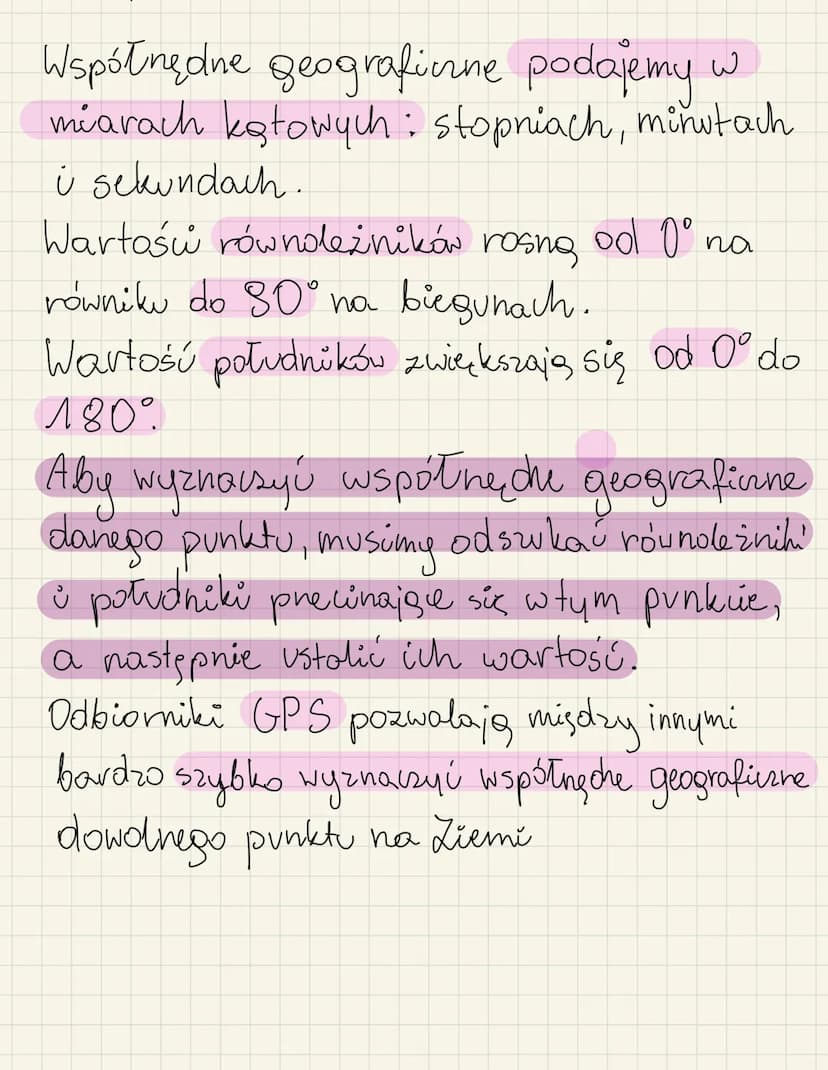 Współrzędne geograficzne podajemy w
miarach kątowych: stopniach, minutach
i sekundach.
Wartości równoleżników rosną od 0° na
równiku do 90° na biegunach.
Wartość południków zwiększają się od 0° do
180°.
Aby wyznaczyć współrzędne geograficzne
danego punktu, musimy odszukać równoleżniki
i południki przecinające się w tym punkcie,
a następnie ustolić ich wartość.
Odbiorniki GPS pozwalają między innymi
bardzo szybko wyznaczyć współrzędne geograficzne
dowolnego punktu na Ziemi